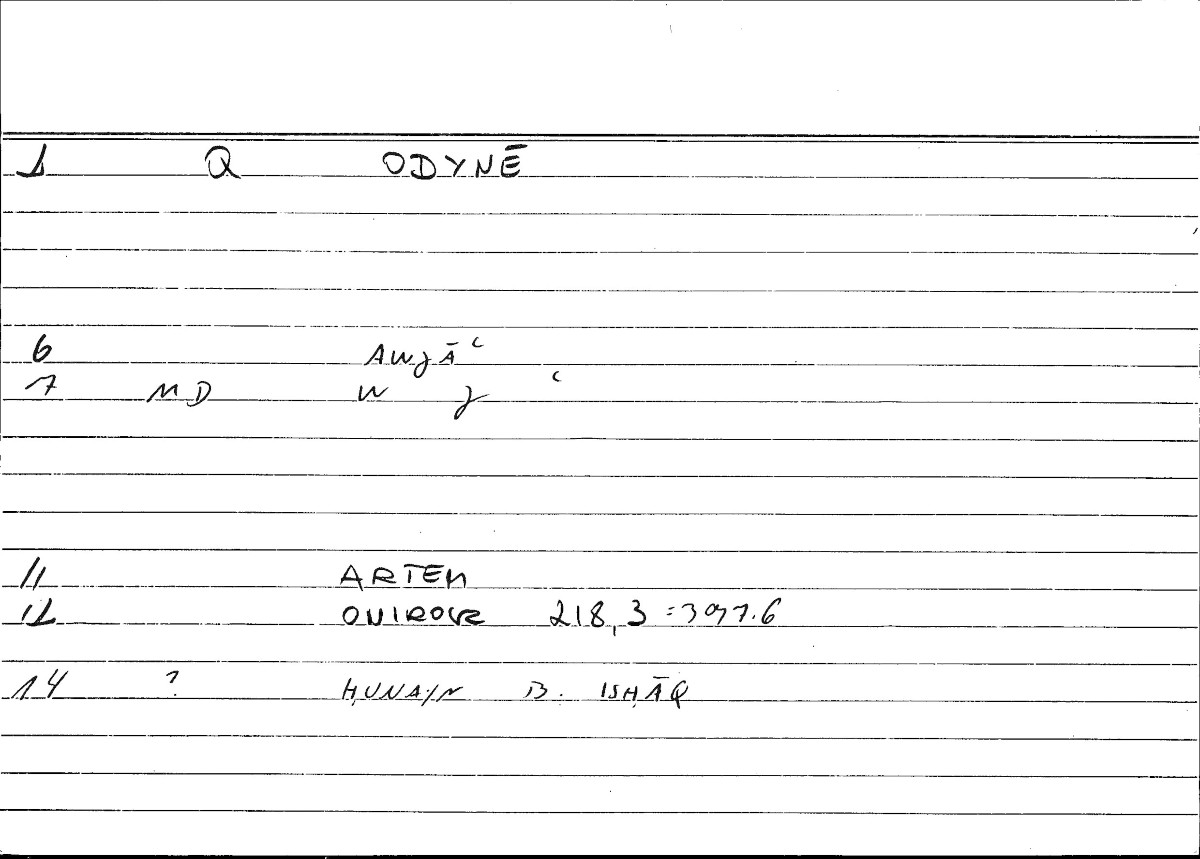 1 Q ODYNĒ
6 AWJĀʿ
7 MD W J ʿ
11 ARTEM
12 ONIROCR 218,3 = 397.6
14 ? ḤUNAYN B. ISḤĀQ